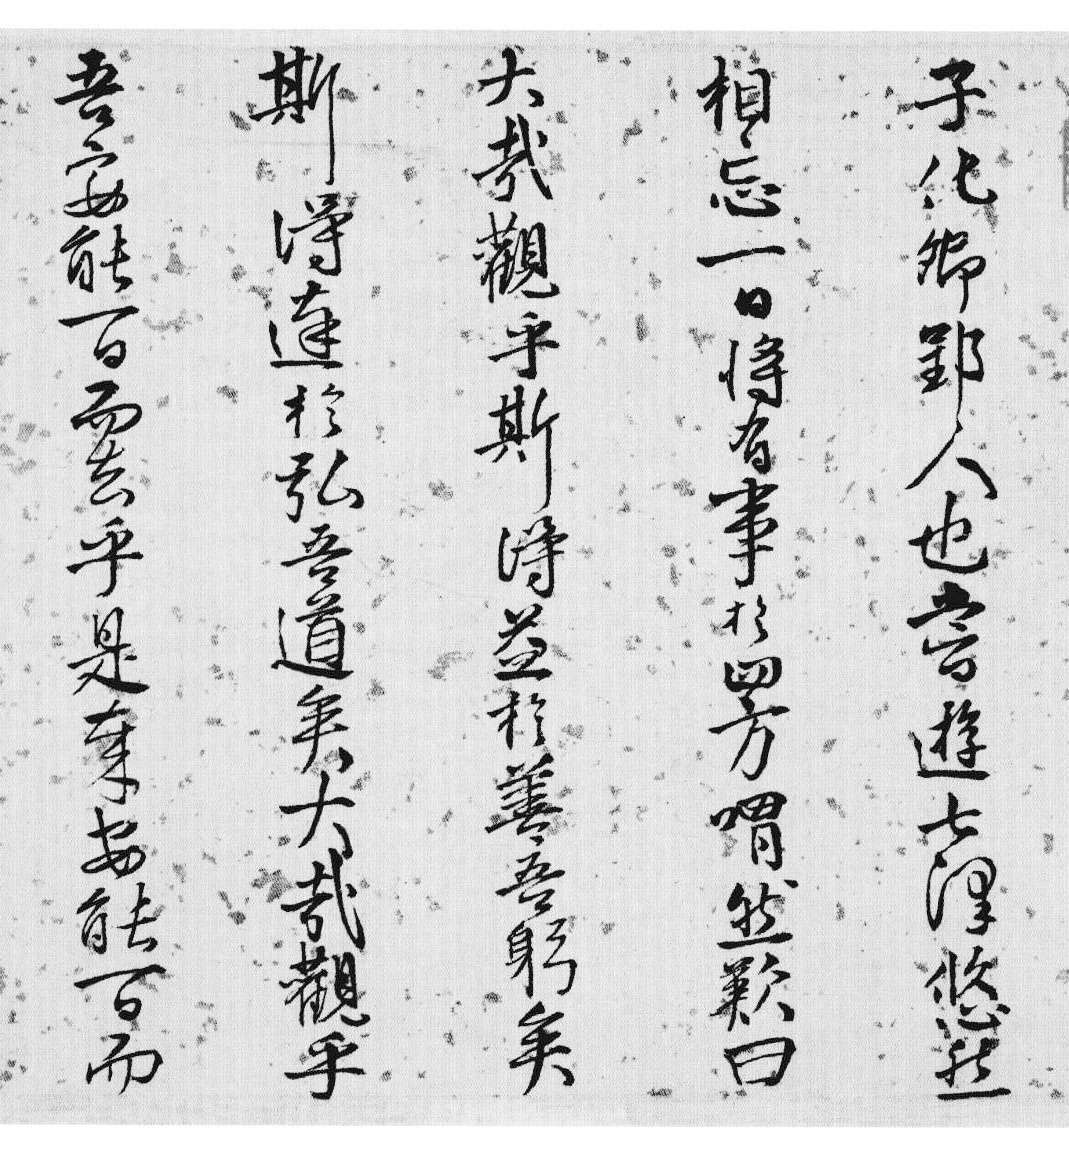 子化卿郢人也嘗遊七澤悠然
相忘一日將有事於四方喟然歎曰
大哉觀乎斯得益於善吾躬矣
斯得達於弘吾道矣大哉觀乎
吾安能一日而去乎是業安能一日而